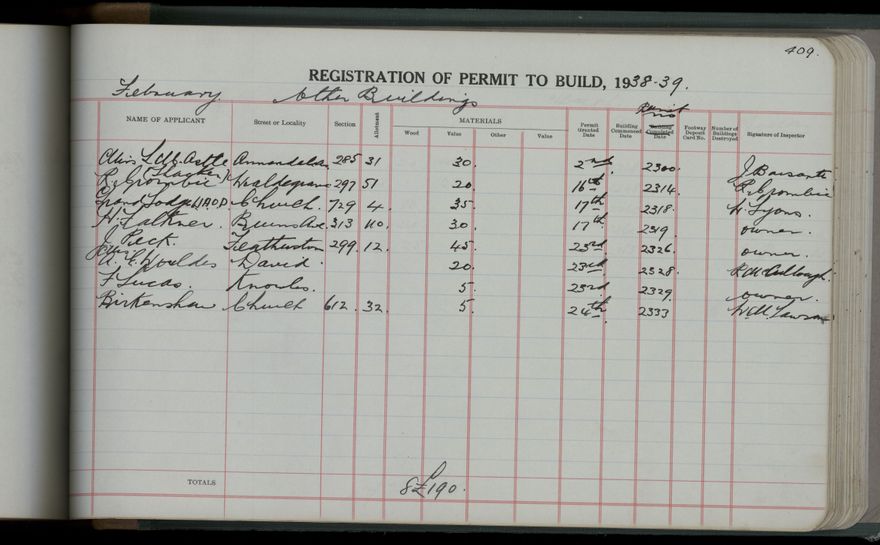 409.
REGISTRATION OF PERMIT TO BUILD, 1938-39.
February. Other Buildings
NAME OF APPLICANT Street or Locality Section Allotment MATERIALS Wood Value Other Value Permit Granted Date Building Commenced Date Permit No Building Completed Date Footway Deposit Card No. Number of Buildings Destroyed Signature of Inspector
Annandale 285 31 30. 2nd 2300.
R. Crombie Waldegrave 297 51 20. 16th 2314. R. Crombie
Grand Lodge U.A.O.D. Church. 729 4. 35. 17th 2318. W. Lyons.
H. Falkner. Bruns Ave. 313 110. 30. 17th 2319 owner.
J. Peck. Featherston 299. 12. 45. 23rd 2326. owner.
Wouldes David. 20. 23rd 2328. McCullough.
F. Lucas. Knowles. 5. 23rd 2329. owner.
Birkenshaw Church 612. 32. 5. 24th 2333 Lawson
TOTALS 8 £190.